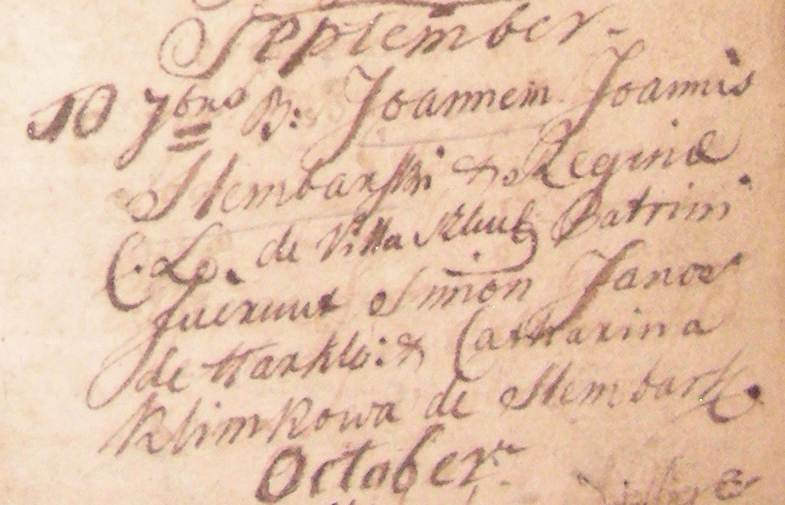 September.
10 7bris B: Joannem Joannis
Stembarski & Reginæ
C. L. de Villa Patrini
fuerunt Simon Janos
de Harklo: & Catharina
Klimkowa de Stembark.
October